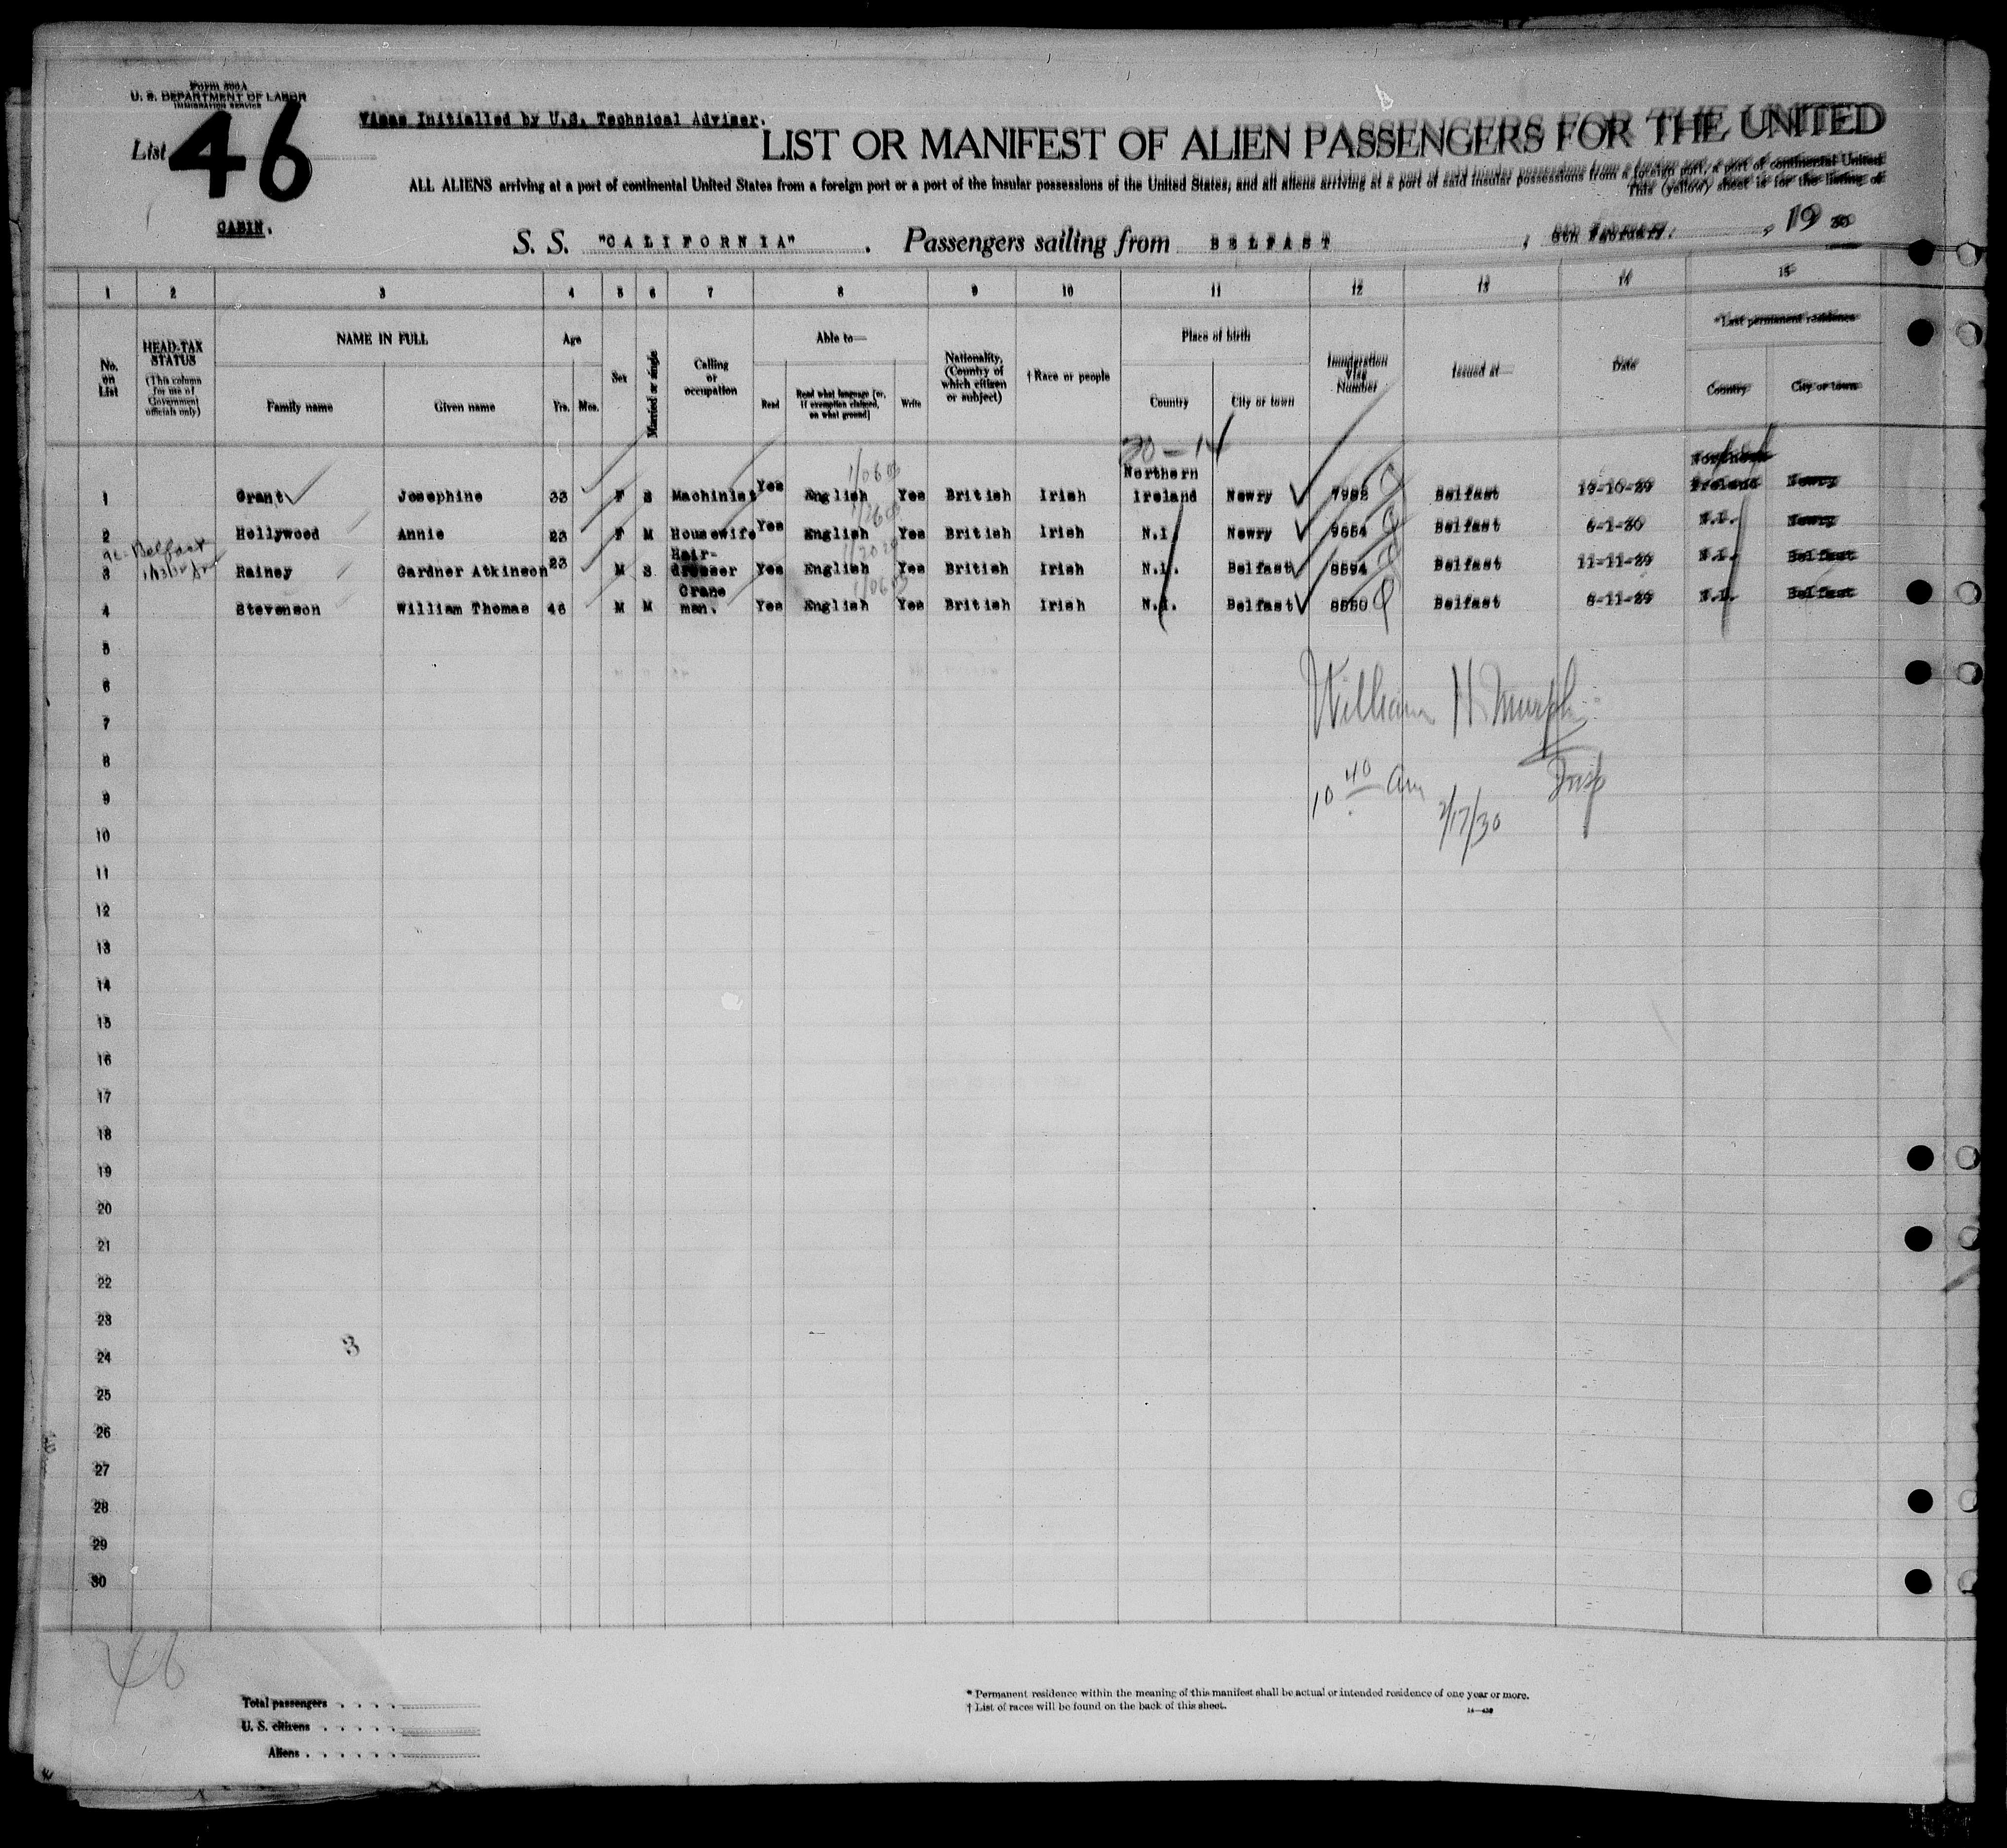 Form 500A
U. S. DEPARTMENT OF LABOR
IMMIGRATION SERVICE
List 46
Visas Initialled by U.S. Technical Adviser.
LIST OR MANIFEST OF ALIEN PASSENGERS FOR THE UNITED
ALL ALIENS arriving at a port of continental United States from a foreign port or a port of the insular possessions of the United States, and all aliens arriving at a port of said insular possessions from a foreign port, a port of continental United
This (yellow) sheet is for the listing of
CABIN.
S. S. "CALIFORNIA" . Passengers sailing from BELFAST , 8th February. , 19 30
1 2 3 4 5 6 7 8 9 10 11 12 13 14 15
No. on List
HEAD-TAX STATUS (This column for use of Government officials only)
NAME IN FULL
Family name Given name
Age
Yrs. Mos.
Sex
Married or single
Calling or occupation
Able to—
Read Read what language [or, if exemption claimed, on what ground] Write
Nationality, (Country of which citizen or subject)
† Race or people
Place of birth
Country City or town
Immigration Visa Number
Issued at—
Date
*Last permanent residence
Country City or town
30-14
1 Grant Josephine 33 F S Machinist Yes English Yes British Irish Northern Ireland Newry Belfast 19-10-29 Northern Ireland Newry
2 Hollywood Annie 23 F M Housewife Yes English Yes British Irish N.I. Newry 9664 Belfast 6-1-30 N.I. Newry
Belfast
3 Rainey Gardner Atkinson 23 M S Hair-dresser Yes English Yes British Irish N.I. Belfast 8594 Belfast 11-11-29 N.I. Belfast
4 Stevenson William Thomas 46 M M Crane man. Yes English Yes British Irish N.I. Belfast 8550 Belfast 8-11-29 N.I. Belfast
5
6
7
William H Murphy
8
Insp
9
10 40 am
2/17/30
10
11
12
13
14
15
16
17
18
19
20
21
22
23
3
24
25
26
27
28
29
30
46
Total passengers . . . .
U. S. citizens . . . . .
Aliens . . . . . .
* Permanent residence within the meaning of this manifest shall be actual or intended residence of one year or more.
† List of races will be found on the back of this sheet.